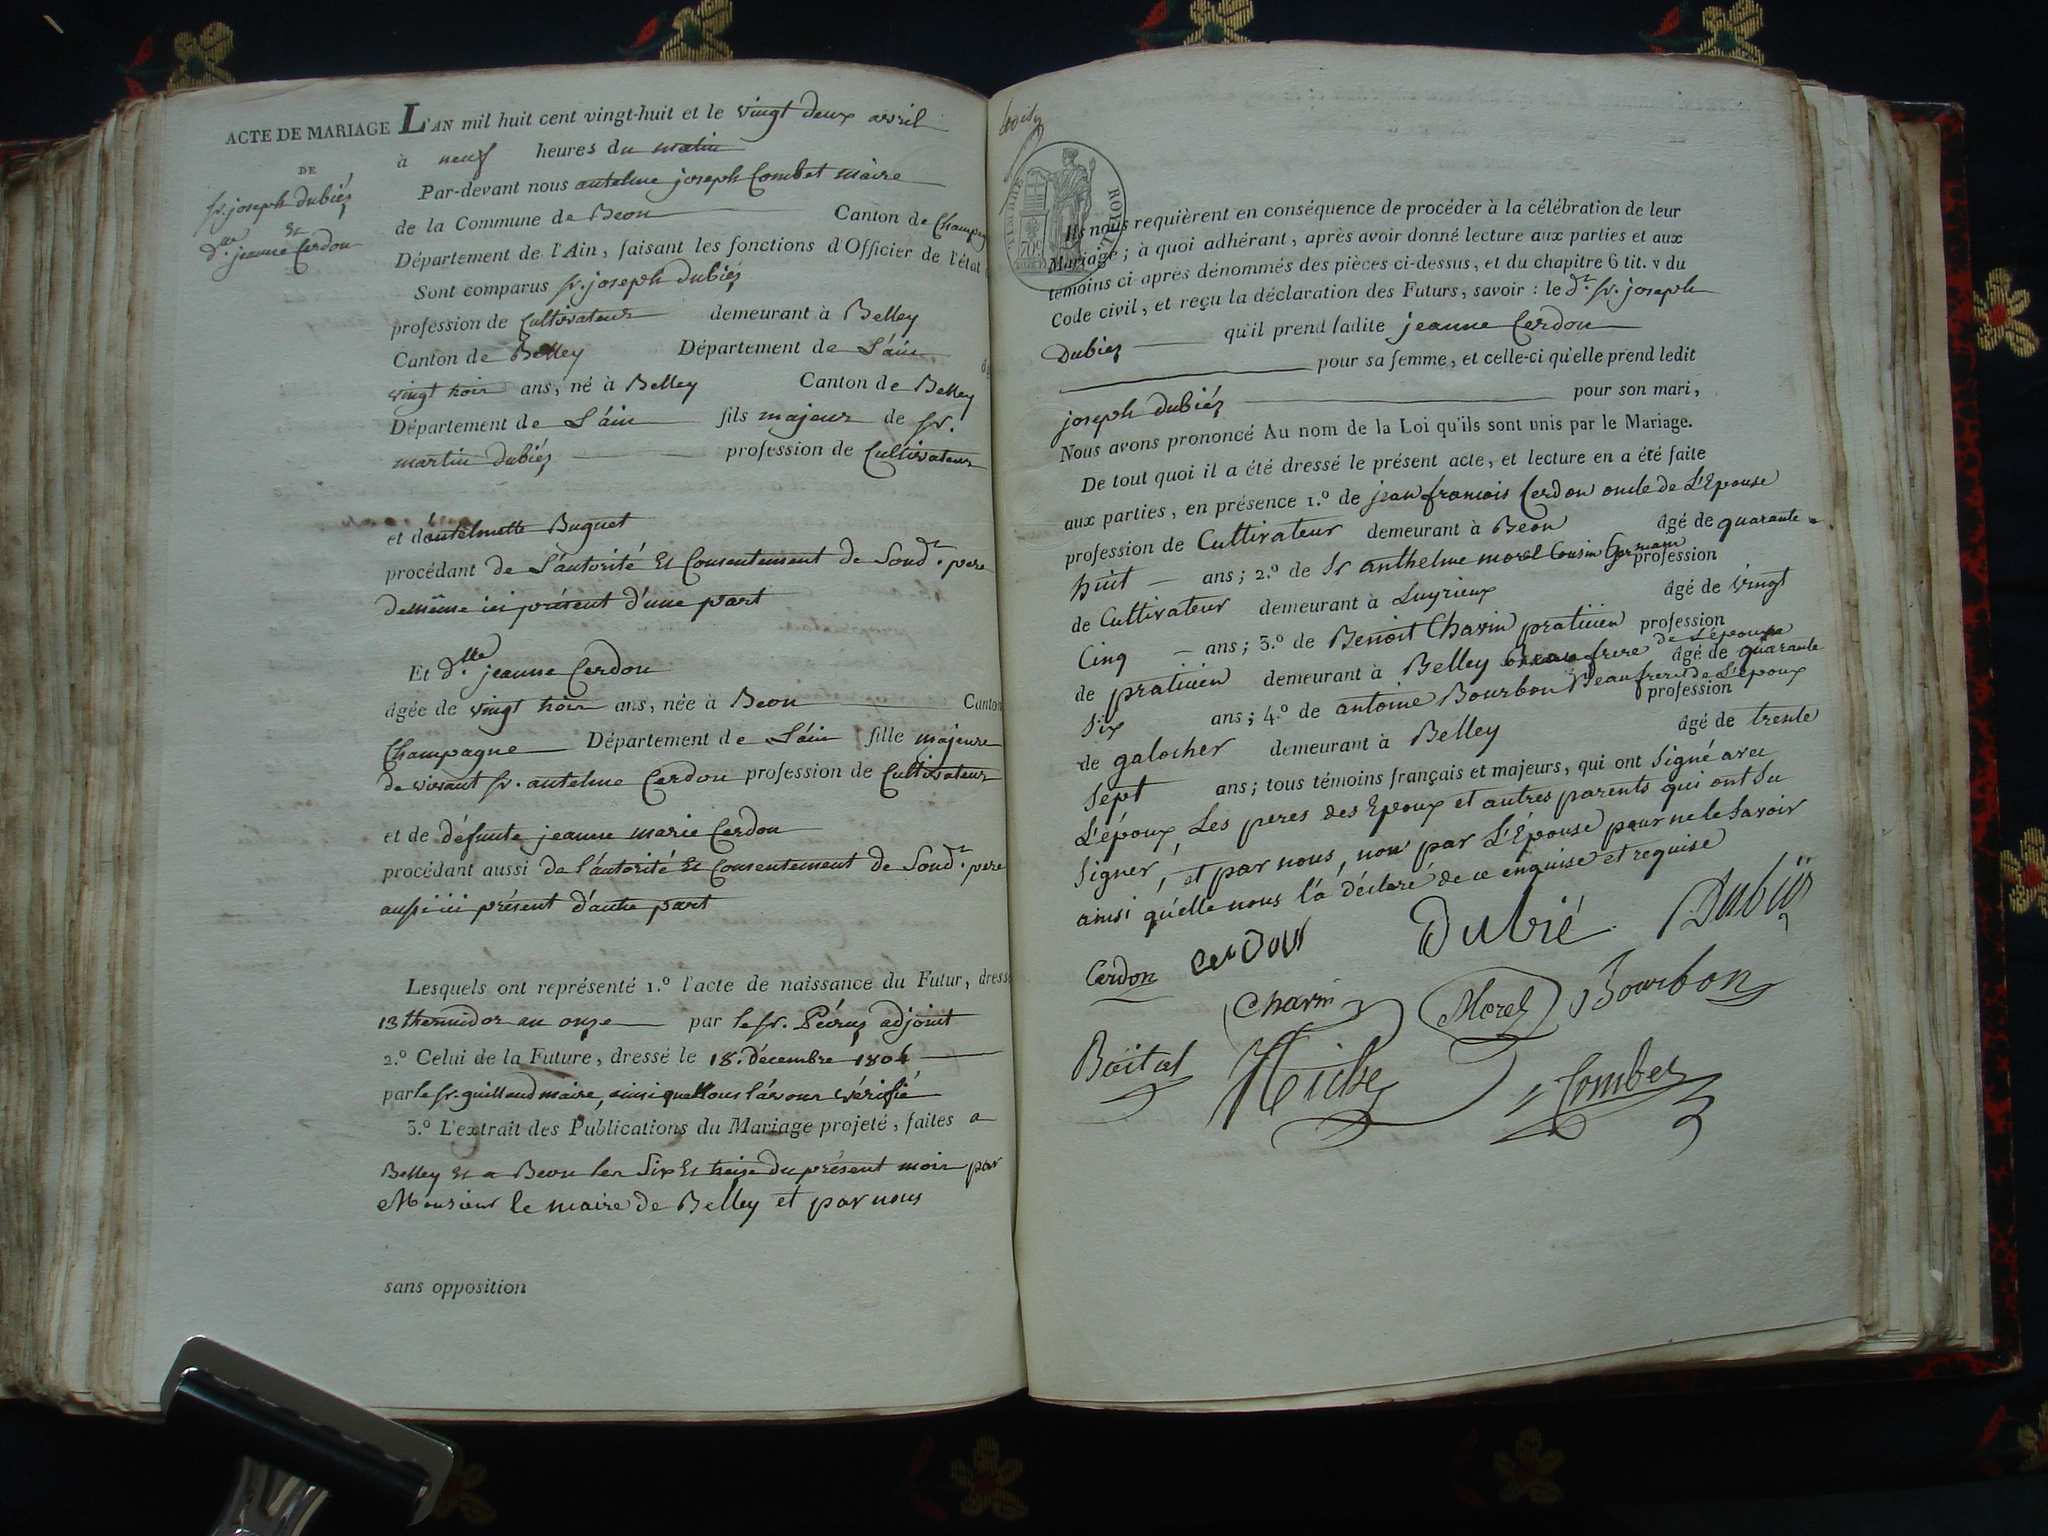 ACTE DE MARIAGE
DE
sr. joseph dubiéz
Et
dlle. jeanne Cerdon
L'AN mil huit cent vingt-huit et le vingt deux avril
à neuf heures du matin
Par-devant nous antelme joseph Combet maire
de la Commune de Beon Canton de Champag
Département de l'Ain, faisant les fonctions d'Officier de l'état
Sont comparus sr. joseph dubiéz
profession de Cultivateur demeurant à Belley
Canton de Belley Département de L'áin
vingt trois ans, né à Belley Canton de Belley
Département de L'áin fils majeur de sr.
martin dubiéz profession de Cultivateur
et d'antelmette Buguet
procédant de L'autorité Et Consentement de Sond. pere
demême ici présent d'une part
Et dlle. jeanne Cerdon
agée de vingt trois ans, née à Beon Canton
Champagne Département de L'áin fille majeure
de vivant sr. antelme Cerdon profession de Cultivateur
et de défunte jeanne marie Cerdon
procédant aussi de l'autorité Et Consentement de Sond. pere
aussi ici présent d'autre part
Lesquels ont représenté 1.º l'acte de naissance du Futur, dress
13 thermidor an onze par le sr. Péruz adjoint
2.º Celui de la Future, dressé le 18. décembre 1804
par le sr. guilland maire, ainsi que Nous l'avons vérifié
3.º L'extrait des Publications du Mariage projeté, faites a
Belley Et a Beon les Six Et treize du présent mois par
Monsieur le maire de Belley et par nous
sans opposition
TIMBRE ROYAL
70c
Ils nous requièrent en conséquence de procéder à la célébration de leur
Mariage; à quoi adhérant, après avoir donné lecture aux parties et aux
témoins ci après dénommés des pièces ci-dessus, et du chapitre 6 tit. v du
Code civil, et reçu la déclaration des Futurs, savoir : le dt. sr. joseph
Dubiez qu'il prend ladite jeanne Cerdon
pour sa femme, et celle-ci qu'elle prend ledit
joseph dubiéz pour son mari,
Nous avons prononcé Au nom de la Loi qu'ils sont unis par le Mariage.
De tout quoi il a été dressé le présent acte, et lecture en a été faite
aux parties, en présence 1.º de jean francois Cerdon oncle de L'Epouse
profession de Cultivateur demeurant à Beon âgé de quarante
huit ans; 2.º de Sr anthelme morel Cousin Germain profession
de Cultivateur demeurant à Luyrieux âgé de vingt
Cinq ans; 3.º de Benoit Charin praticien profession
de praticien demeurant à Belley Beaufrere de L'époux âgé de quarante
Six ans; 4.º de antoine Bourbon Beaufrere de L'époux profession
de galocher demeurant à Belley âgé de trente
Sept ans; tous témoins français et majeurs, qui ont Signé avec
L'époux, Les peres des Epoux et autres parents qui ont Su
Signer, et par nous, non par L'Épouse pour ne le Savoir
ainsi qu'elle nous l'a déclaré de ce enquise et requise
Cerdon Cerdon Dubié Dubiéz
Charin Morel Bourbon
Boitat Combet